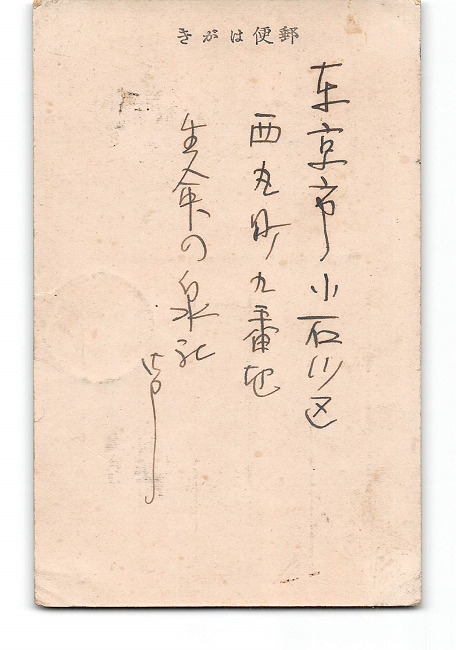 郵便はがき
東京市小石川区
西丸町九番地
生命の泉社
御中